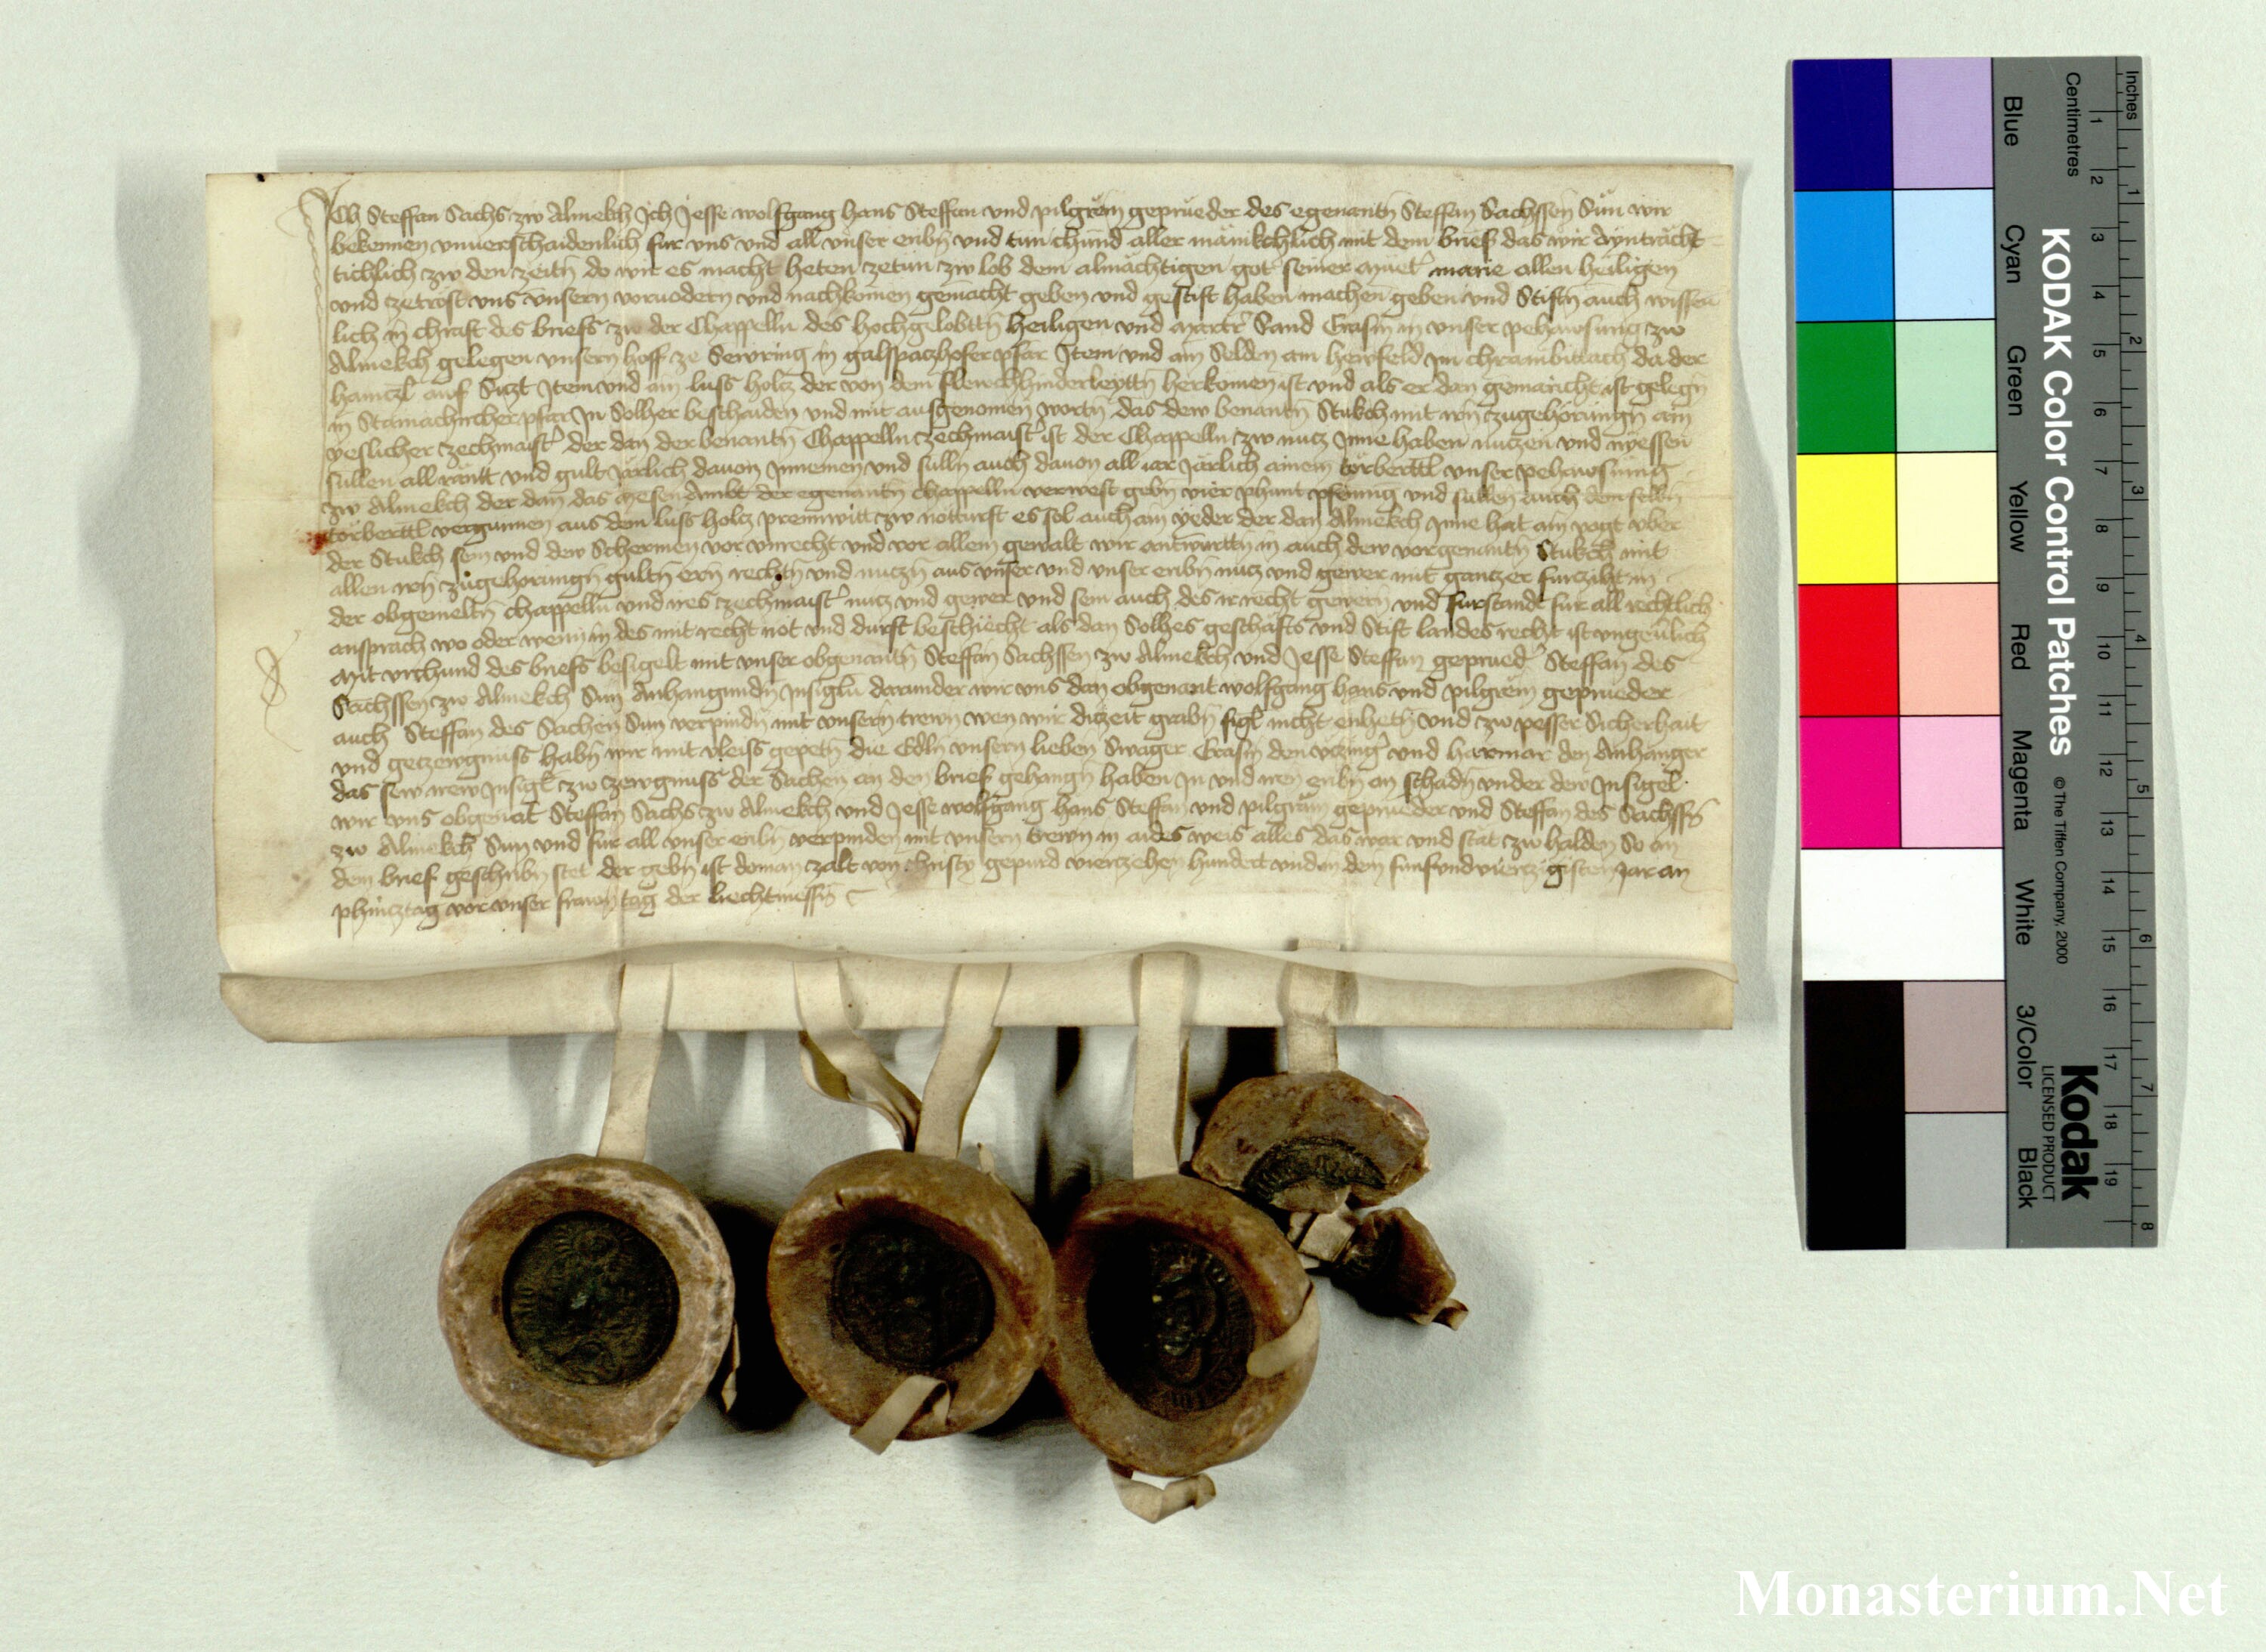 Ich Steffan Sachs zw Almekch Ich Jesse wolfgang hans Steffan vnd pilgrem geprueder des egenantn Steffan Sachssen Sün wir
bekennen vnuerschaidenlich fur vns vnd all vnser erbn vnd tun chund aller mänikchlich mit dem brief das wir Aynträcht
tichlich zw den zeitn do wir es macht heten zetun zw lob dem almächtigen got seiner muetr marie allen heiligen
vnd zetrost vns vnsern voruodern vnd nachkomen gemacht geben vnd gestift haben machen geben vnd Stiftn auch wissen
lich in chraft des briefs zu der Chappelln des hochgelobttn heiligen vnd martrr Sand Erasm in vnser pehawsung zw
Almekch gelegen vnsern hoff ze Sewring in galspatzhofer pfar Item vnd ain Selden am herfeld im chrambittach da der
haintzl auf Sitzt Item vnd ain luss holtz der von dem herkomen ist vnd als er dan gemaricht ist gelegn
in Stainachircher pfar In Solher beschaiden vnd mit ausgenomen wortn das dew benantn Stukch mit irn zugehorungn ain
yeslicher zechmaistr der dan der benantn Chappelln zechmaistr ist der Chappelln zw nutz Inne haben nutzen vnd nyessen
sullen all räntt vnd gult Järlich dauon Innemen vnd sulln auch dauon all iar Järlich ainem torberttl vnser pehawsung
zw Almekch der dan das mesen Ambt der egenantn chappelln verwest gebn vier phunt pfennig vnd sullen auch dem selbn
torberttl vergunnen aus dem luss holtz prennwitt zw notturft es sol auch ain yeder der dan Almekch Inne hat ain vogt vber
der Stukch sein vnd dew Schermen vor vnrecht vnd vor allem gewalt wir antwurttn in auch dew vorgenantn Stukch mit
allen irn zugehorungn gultn ern rechtn vnd nutzn aus vnser vnd vnser erbn nutz vnd gewer mit gantzer furtziht in
der obgemeltn chappelln vnd ires zechmaistr nutz vnd gewer vnd sein auch des ir recht gewern vnd furstandt fur all rechtlich
ansprach wo oder wenn in des mit recht not vnd durft beschiecht als dan Solhes geschäfts vnd Stift landes recht ist vngeuerlich
Mit vrchund des briefs besigelt mit vnser obgenantn Steffan Sachssen zw Almekch vnd Jesse Steffan gepruedr Steffan des
Sachssen zw Almekch Sun Anhangundn Insigln darunder wir vns dan obgenant wolfgang hans vnd pilgrem geprueder
auch Steffan des Sachen Sun verpindn mit vnsern trewn wen wir ditzeit grabn sigl nicht enhetn vnd zw pesser Sicherhait
vnd getzewgnuss habn wir mit vleiss gepetn die Edln vnsern lieben Swager Erasm den vtzingr vnd hartmar den Anhanger
das sew irew Insigl zw zewgnuss der Sachen an den brief gehangn haben In vnd iren erbn an schadn vnder dew Insigel
wir vns obgenat Steffan Sachs zw Almekch vnd Jesse wolfgang hans Steffan vnd pilgram geprueder vnd Steffan des Sachssn
zw Almekch Sun vnd fur all vnser erbn verpinden mit vnsern trewn in aides weis alles das war vnd stät zw halden So an
dem brief geschribn stet der gebn ist do man zalt von christy gepurd viertzehen hundert vnd in dem funfvndviertzigisten Jar an
phintztag vor vnser frawn tag der liechtmessn
Inches
Centimetres
KODAK Color Control Patches
© The Tiffen Company, 2000
Kodak
LICENSED PRODUCT
Blue
Cyan
Green
Yellow
Red
Magenta
White
3/Color
Black
1 2 3 4 5 6 7 8
1 2 3 4 5 6 7 8 9 10 11 12 13 14 15 16 17 18 19
Monasterium.Net